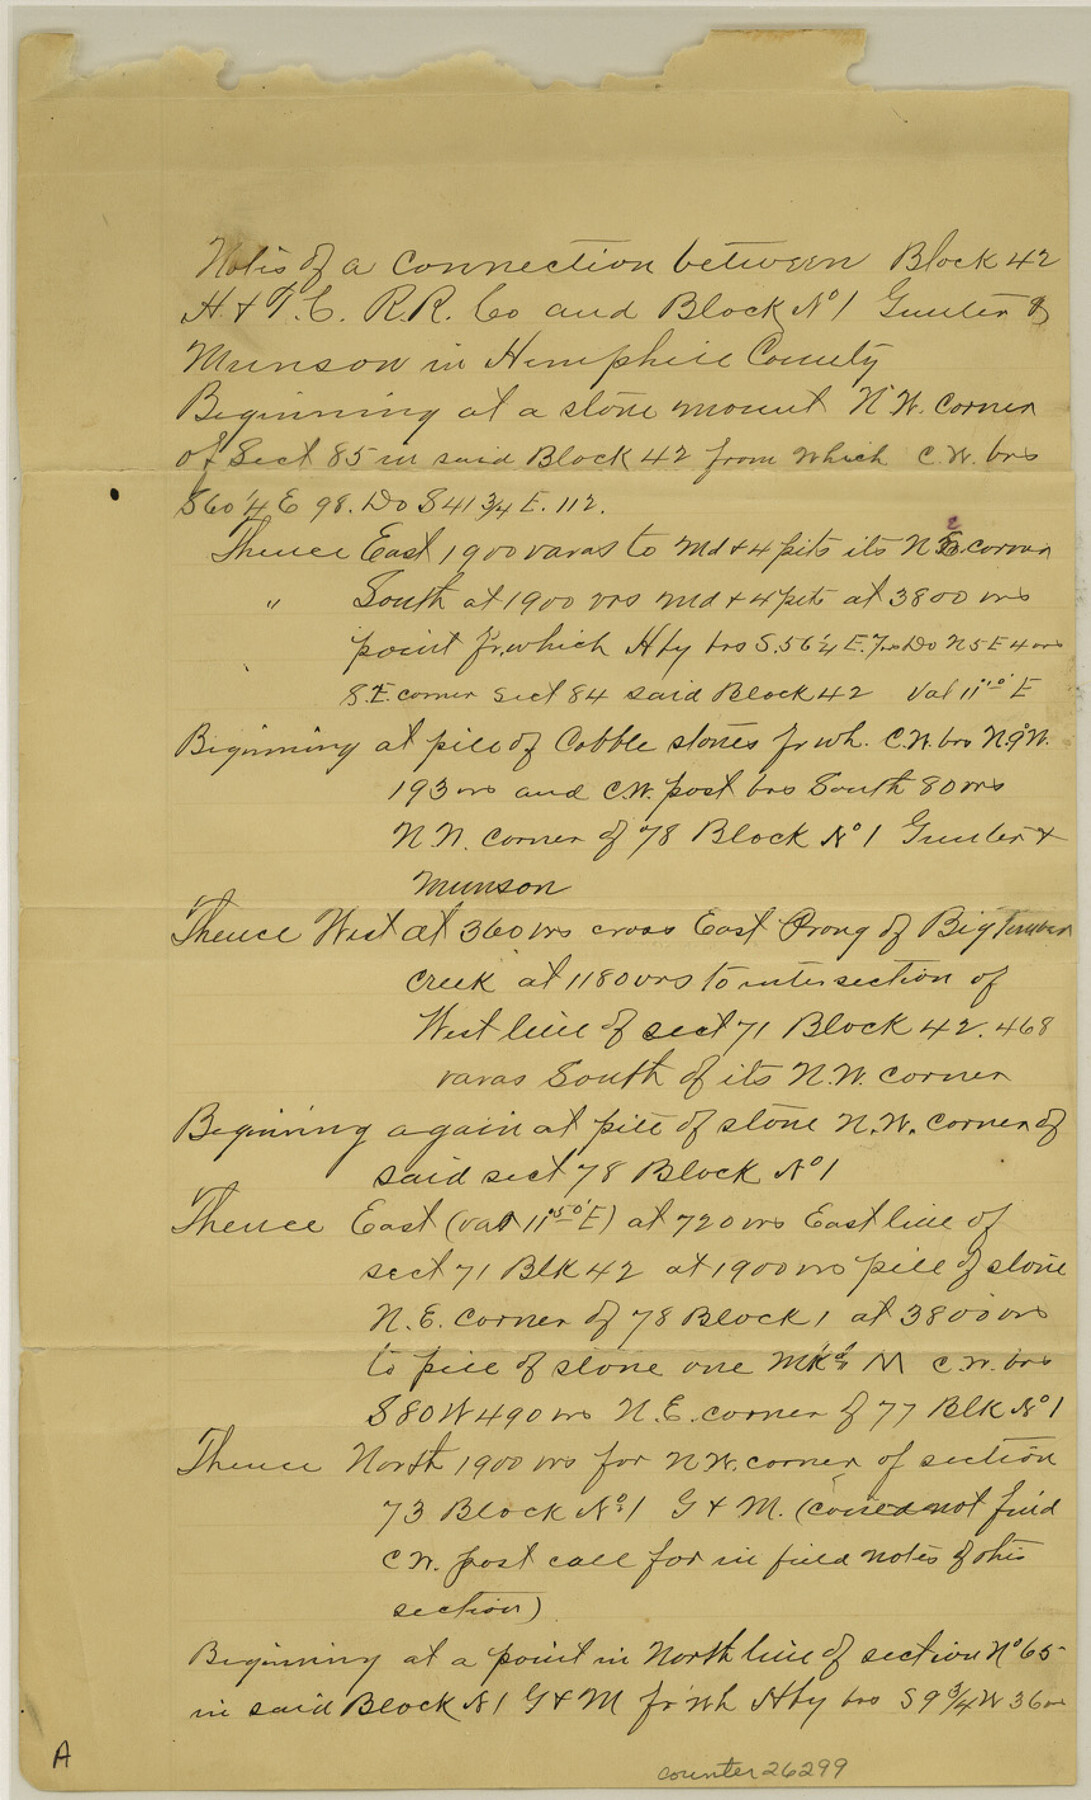 Notes of a connection between Block 42
H. & T. C. R.R. Co and Block No 1 Gunter &
Munson in Hemphill County
Beginning at a stone mount N.W. corner
of Sect 85 in said Block 42 from which C.W. brs
S60 1/4 E 98. Do S41 3/4 E. 112.
Thence East 1900 varas to Md & 4 pits its N E. corner
" South at 1900 vrs Md & 4 pits at 3800 vrs
point fr. which Hby brs S. 56 1/4 E. 7 vrs Do N 5 E 4 vrs
S.E. corner Sect 84 said Block 42 Val 11° 10' E
Beginning at pile of Cobble stones fr wh. C.W. brs N. 9° W.
193 vrs and C.W. post brs South 80 vrs
N W. corner of 78 Block No 1 Gunter &
Munson
Thence West at 360 vrs cross East Prong of Big Timber
creek at 1180 vrs to intersection of
West line of sect 71 Block 42. 468
varas South of its N.W. corner
Beginning again at pile of stone N.W. corner of
said sect 78 Block No 1
Thence East (var 11° 50' E) at 720 vrs East line of
sect 71 Blk 42 at 1900 vrs pile of stone
N. E. corner of 78 Block 1 at 3800 vrs
to pile of stone one Mkd M C.W. brs
S 80 W 490 vrs N.E. corner of 77 Blk No 1
Thence North 1900 vrs for N W. corner of section
73 Block No. 1 G & M. (could not find
C W. post call for in field notes of this
section)
Beginning at a point in North line of section No 65
in said Block N 1 G & M fr wh Hby brs S 9 3/4 W 36 vrs
A
counter 26299